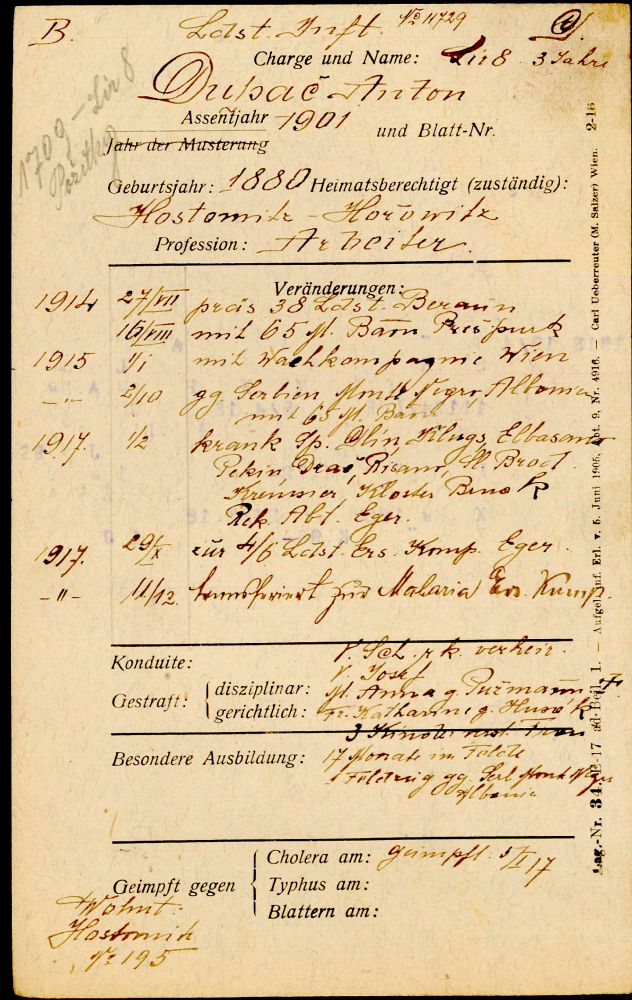 B. Ldst. Inft. № 11729
Charge und Name: Lir 8 3 Jahre
Dusač Anton
Assentjahr 1901 und Blatt-Nr.
Jahr der Musterung
№ 709 - Lir 8
Geburtsjahr: 1880 Heimatsberechtigt (zuständig):
Hostomitz - Hořowitz
Profession: Arbeiter.
Veränderungen:
1914 27/VII präs 38 Ldst. Beraun
16/VIII mit 65 M. Baon
1915 1/I mit Wachkompagnie Wien
-"- 2/10 gg. Serbien, Monte Negro, Albanien
mit 65 M. Baon
1917. 1/2 krank Sp. Klugs, Elbasan
Pekin Drač, Risano, Sl. Brod.
Kremsier, Kloster
Rek. Abt. Eger.
1917. 29/X zur 4/6 Ldst. Ers. Komp. Eger
-"- 11/12. transferiert zur Malaria Ers. Komp.
Konduite: V. Sch. r. k. verheir.
V. Josef
Gestraft: disziplinar: M. Anna g. Purmann +
gerichtlich: Fr. Katharine g. Husák
3 Kinder
Besondere Ausbildung: 17 Monate im Felde
Feldzug gg. Serb. Mont. Negro
Albanie
Geimpft gegen
Cholera am: geimpft. 5/II 17
Typhus am:
Blattern am:
Wohnt:
Hostomitz
№ 195
Lag.-Nr. 34. E-17 ad Beil. 1. — Aufgel. Inf. Erl. v. 5. Juni 1905, Abt. 9, Nr. 4916. — Carl Ueberreuter (M. Salzer) Wien. 2-16